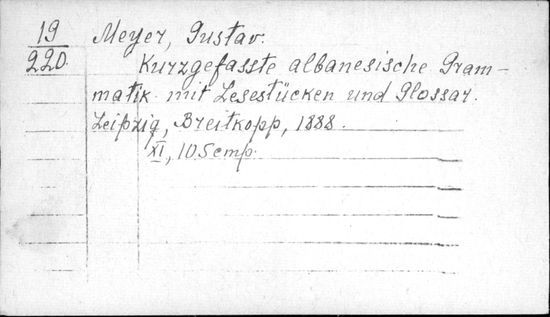 19
220
Meyer, Gustav.
Kurzgefasste albanesische Gram-
matik mit Lesestücken und Glossar.
Leipzig, Breitkopp, 1888.
XI, 10 Semp.